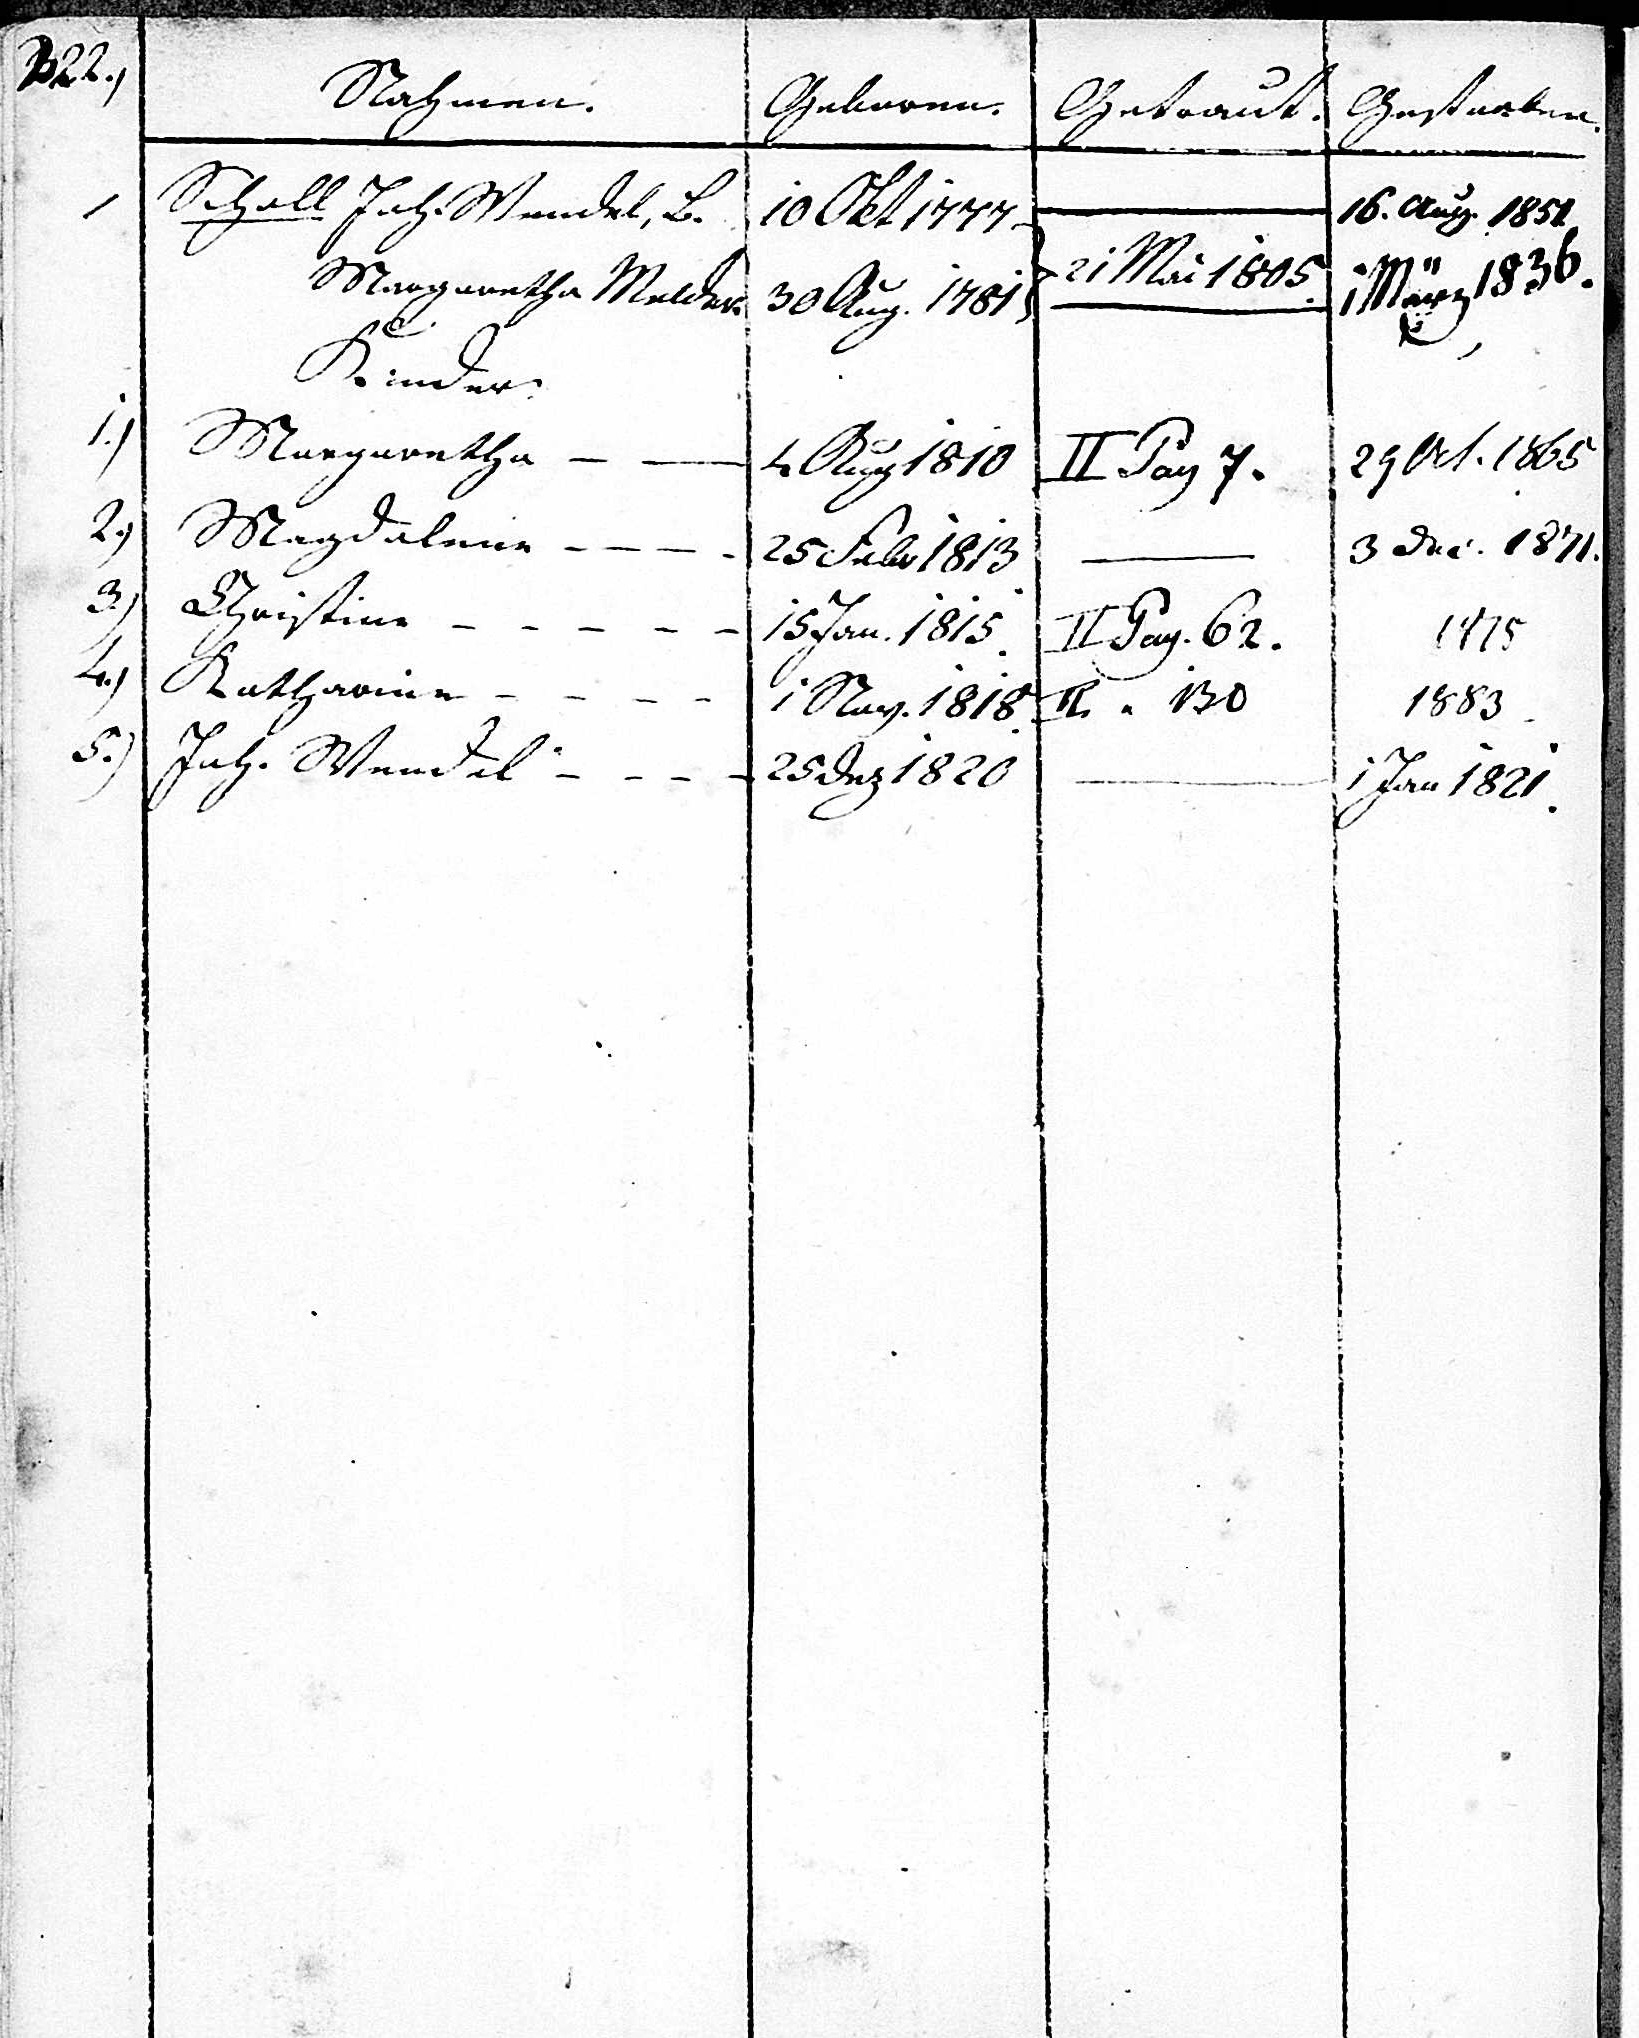 322.)
Nahmen. Geboren. Getraut. Gestorben.
Scholl Joh. Wendel, B. 10 Okt 1777 16. Aug. 1851
Margaretha Melder 30 Aug. 1781 } 21 Mai 1805 1 März 1836.
Kinder:
1.) Margaretha - — 4 Aug 1810 II Pag 7. 29 Oct. 1865
2.) Magdalena - - - - 25 Febr 1813 — 3 Dec. 1871.
3.) Christine - - - - - 15 Jan. 1815. II Pag. 62. 1875
4.) Katharine - - - - 1 Nov. 1818 II. " 130 1883
5.) Joh. Wendel - - - - 25 Dez 1820 — 1 Jan 1821.